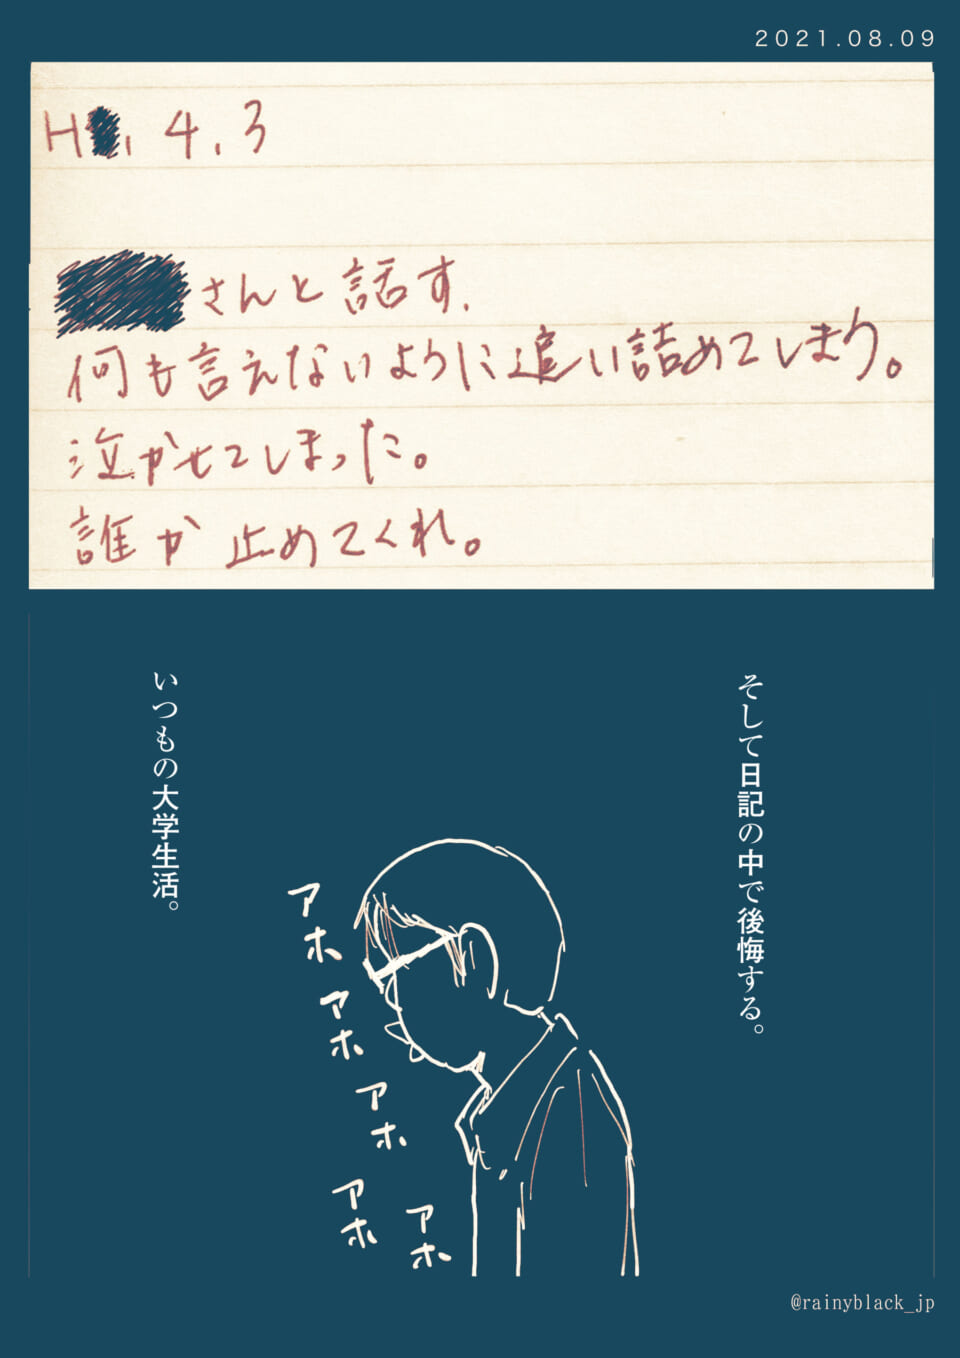 2021.08.09
H , 4, 3
さんと話す.
何も言えないように追い詰めてしまう。
泣かせてしまった。
誰か止めてくれ。
そして日記の中で後悔する。
いつもの大学生活。
アホ
アホ
アホ
アホ
アホ
@rainyblack_jp